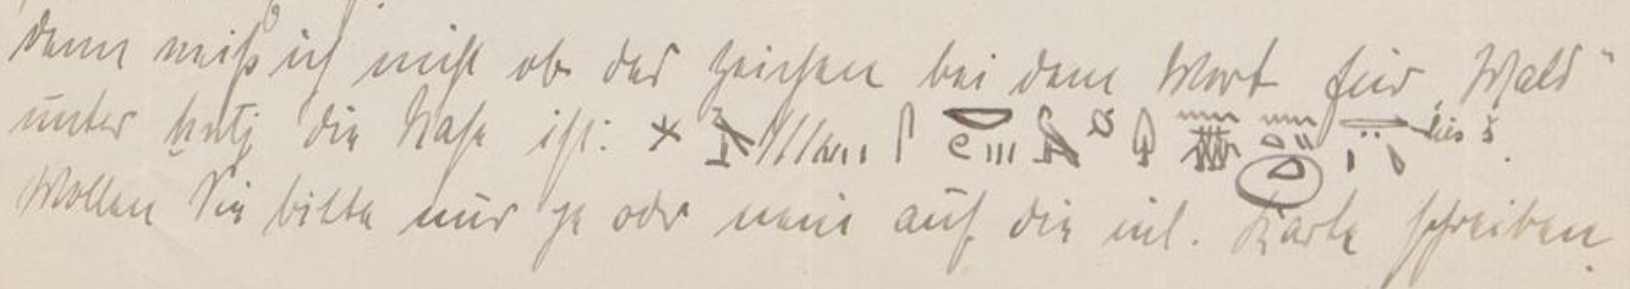 dann weiß ich nicht ob das Zeichen bei dem Wort für „Wald"
unter ḫntj die Nase ist:
Wollen Sie bitte nur ja oder nein auf die inl. Karte schreiben.